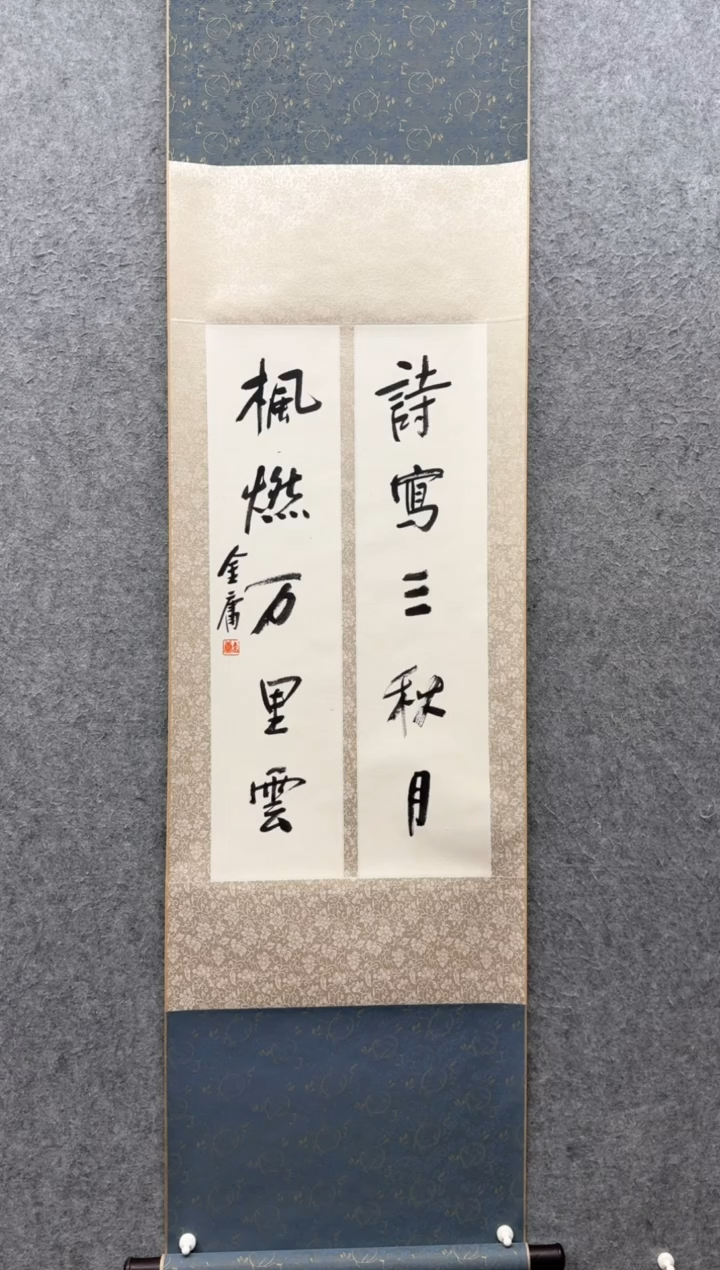 詩寫三秋月
楓燃万里雲
金庸